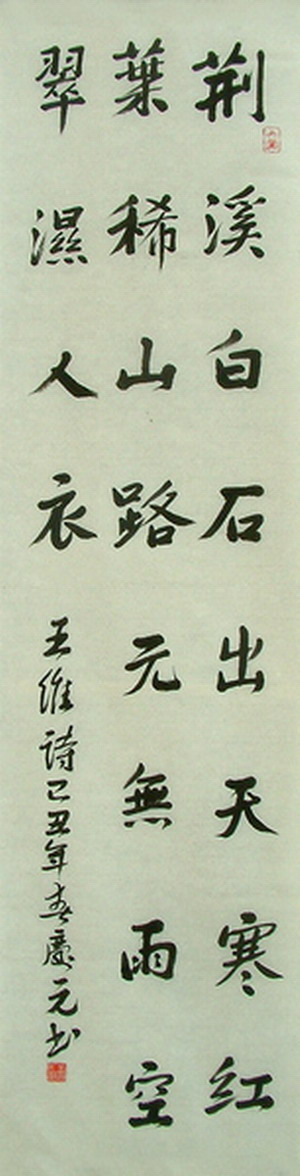 荆溪白石出天寒红
葉稀山路元無雨空
翠濕人衣
王維詩己丑年春慶元书